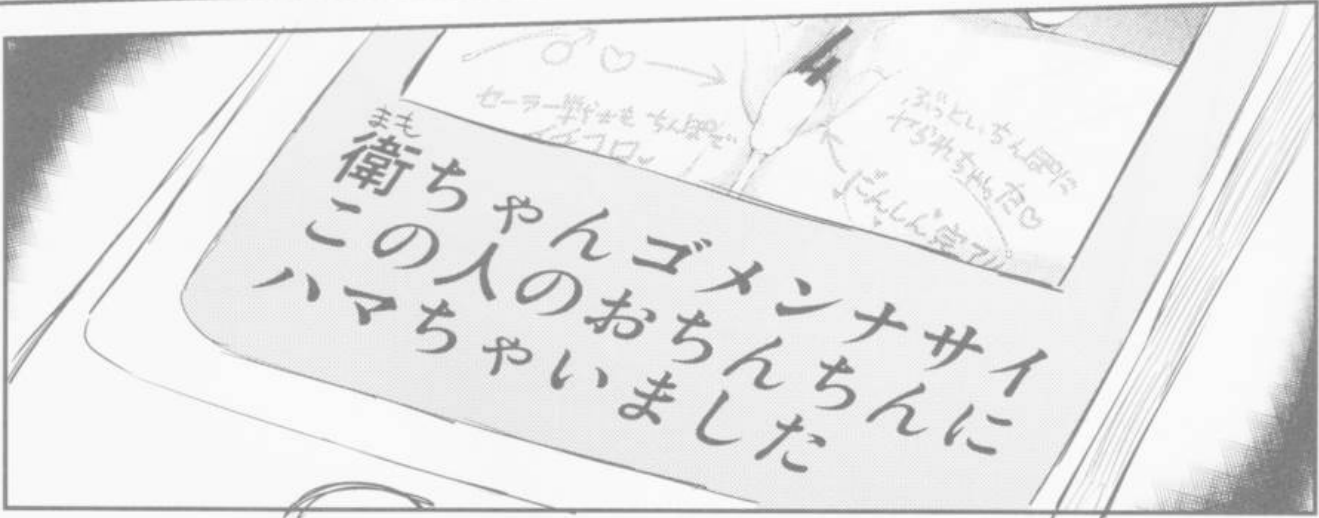 セーラー戦士も ちんぽで
イチコロ♥
ぶっといちんぽに
ヤられちゃった♡
にんしん完了
まも
衛ちゃんゴメンナサイ
この人のおちんちんに
ハマちゃいました